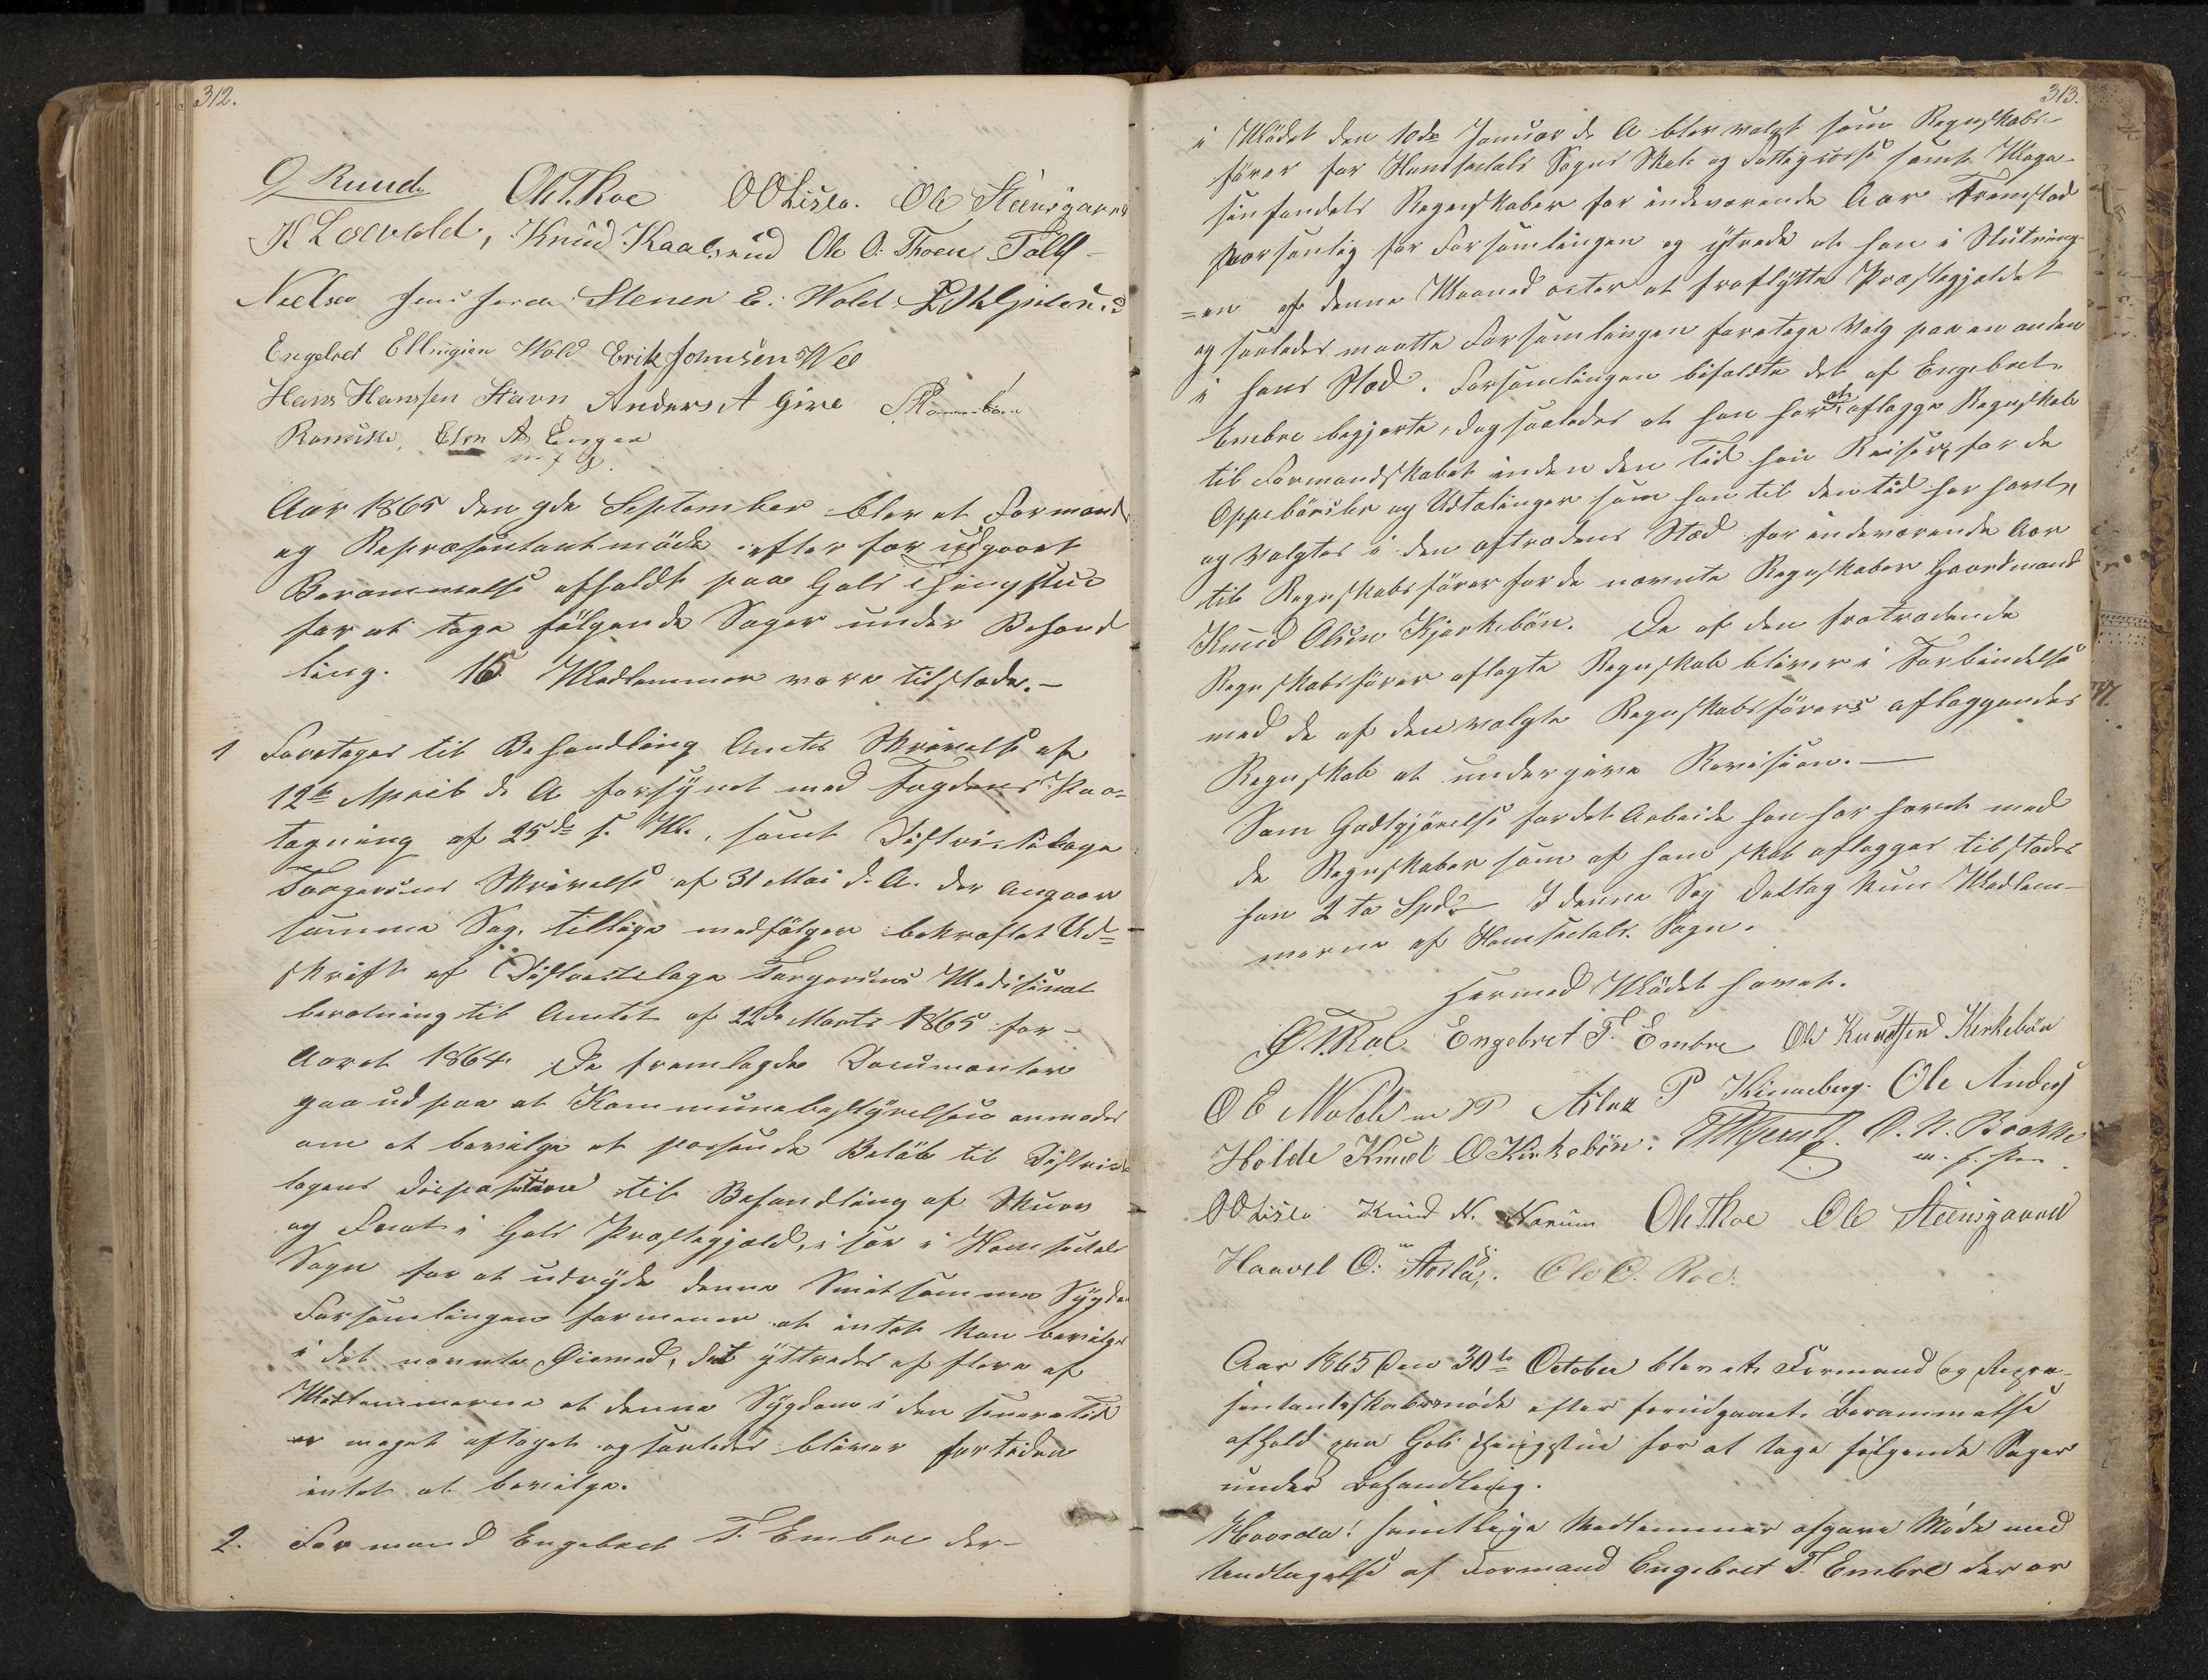 312.
O Ruud Ole T. Roe O O Lislo. Ole Steinsgaard
K Løevold, Knud Kaalsrud Ole O. Thoen Tollf
Nielsen Jens Stener E. Wold
Engebret Ellingsen Wold Erik Johnsen
Hans Hanssen Stavn Anders A Give
Elen As Engen
m f P.
Aar 1865 den 9de September blev et Formands
og Repræsentantmöde efter forudgaaet
Berammelse afholdt paa Gols Thingstue
for at tage fölgende Sager under Behand
ling. 15 Medlemmer vare tilstæde. —
1 Foretages til Behandling Amtets Skrivelse af
12te April d. A forsÿnet med Fogdens Paa-
tegning af 25de s. M., samt Distriktslæge
Torgersens Skrivelse af 31 Mai d. A. der angaar
samme Sag, tillige medfölger bekræftet Ud=
skrift af Distriktslæge Torgersens Medisinal
beretning til Amtet af 22de Marts 1865 for
Aaret 1864. De fremlagde Documenter
gaa ud paa at Kommunebestÿrelsen anmodes
om at bevilge et passende Belöb til Distrikts
lægens disposition til Behandling af Skurv
og Fnat i Gols Præstegjæld, i sær i Hemsedals
Sogn for at udrÿde denne Smitsomme Sÿgdom
Forsamlingen formener at intet kan bevilges
i det nævnte Öiemed, det ÿttredes af flere af
Medlemmerne at denne Sÿgdom i den senere Tid
er meget aftaget og saaledes bliver for tiden
intet at bevilge.
2. Formand Engebret T. Embre der
313.
i Mödet den 10de Januar d. A blev valgt som Regnskabs-
förer for Hemsedals Sogns Skole og Fattigcasse samt Maga-
sinfondets Regnskaber for indeværende Aar Fremstod
personlig for Forsamlingen og ÿtrede at han i Slutning-
=en af denne Maaned agter at fraflÿtte Præstegjeldet
og saaledes maatte Forsamlingen foretage Valg paa en anden
i hans Sted. Forsamlingen bifaldte det af Engebret
Embre begjærte, dog saaledes at han har at aflægge Regnskab
til Formandskabet inden den Tid han Reiser, for de
Oppebörsler og Udtælinger som han til den tid har havt,
og Valgtes i den aftrædens Sted for indeværende Aar
til Regnskabsförer for de nævnte Regnskaber Gaardmand
Knud Olsen Kjerkebön. De af den fratrædende
Regnskabsförer aflagte Regnskab bliver i Forbindelse
med de af den valgte Regnskabsförers aflæggendes
Regnskab at undergive Revision. —
Som Godtgjörelse for det Arbeide han har havt med
de Regnskaber som af ham skal aflægges tilstodes
han 2 to Spd. — I denne Sag deltog kun Medlem-
merne af Hemsedals Sogn.
Hermed Mödet hævet.
Engebret T. Embre Ole Knudsen Kirkebön
O E Molde m P Aslak P Kinneberg. Ole Anders
Holde Knud O Kirkebön. O. N. Brekke
m. f. Pen.
O O Lislo Knud N. Norum Ole T Roe Ole Steinsgaard
Haavel O: Aasla. Ole O. Roe.
Aar 1865 den 30te October blev et Formand og Repræ-
sentantskabsmöde efter forudgaaet Berammelse
afhold paa Gols Thingstue for at tage fölgende Sager
under Behandling.
Hvorda! samtlige Medlemmer afgave Möde med
Undtagelse af Formand Engebret T. Embre der er